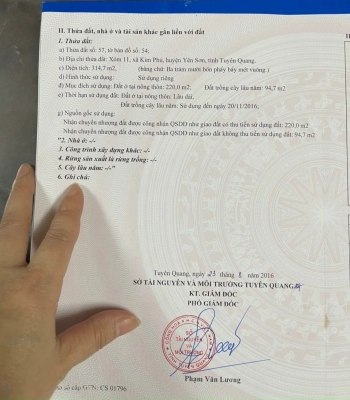 II. Thửa đất, nhà ở và tài sản khác gắn liền với đất
1. Thửa đất:
a) Thửa đất số: 57, tờ bản đồ số: 54;
b) Địa chỉ thửa đất: Xóm 11, xã Kim Phú, huyện Yên Sơn, tỉnh Tuyên Quang.
c) Diện tích: 314,7 m2, (bằng chữ: Ba trăm mười bốn phẩy bảy mét vuông.)
d) Hình thức sử dụng: Sử dụng riêng
đ) Mục đích sử dụng: Đất ở tại nông thôn: 220,0 m2; Đất trồng cây lâu năm: 94,7 m2
e) Thời hạn sử dụng đất: Đất ở tại nông thôn: Lâu dài;
Đất trồng cây lâu năm: Sử dụng đến ngày 20/11/2016;
g) Nguồn gốc sử dụng:
Nhận chuyển nhượng đất được công nhận QSDĐ như giao đất có thu tiền sử dụng đất: 220,0 m2
Nhận chuyển nhượng đất được công nhận QSDĐ như giao đất không thu tiền sử dụng đất: 94,7 m2
"2. Nhà ở: -/-
3. Công trình xây dựng khác: -/-
4. Rừng sản xuất là rừng trồng: -/-
5. Cây lâu năm: -/-"
6. Ghi chú:
Tuyên Quang, ngày 23 tháng 8 năm 2016
SỞ TÀI NGUYÊN VÀ MÔI TRƯỜNG TUYÊN QUANG
KT. GIÁM ĐỐC
PHÓ GIÁM ĐỐC
SỞ
TÀI NGUYÊN
VÀ
MÔI TRƯỜNG
Phạm Văn Lương
sổ cấp GCN: CS 01796